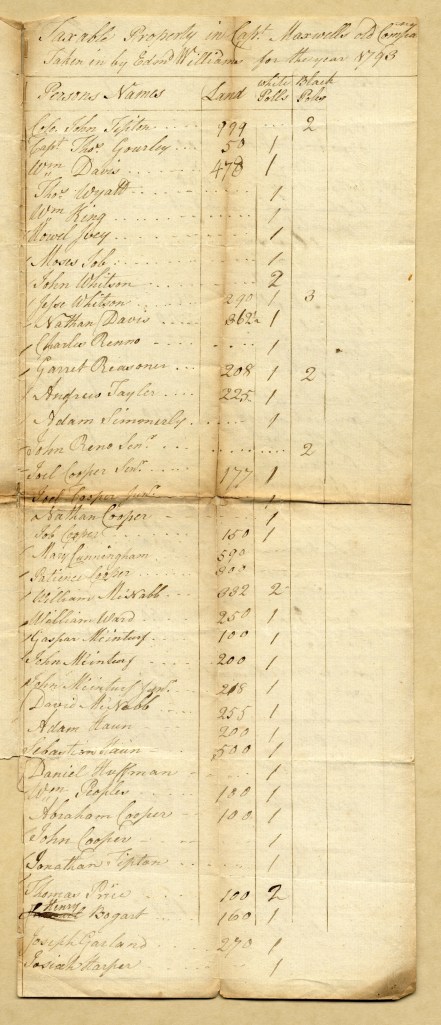 Taxable Property in Capt. Maxwells old Company
Taken in by Edmd Williams for the year 1793
Persons Names Land white Polls Black Polls
Colo. John Tipton 2
Capt Thos. Gourley 50 1
Wm Davis 478 1
Thos. Wyatt 1
Wm King 1
Howel Ivey 1
Moses Job 1
John Whitson 2
Jesse Whitson 290 1 3
Nathan Davis 362 1
Charles Renno 1
Garret Reasoner 208 1 2
Andrew Tayler 225 1
Adam Simmerly 1
John Reno Senr. 2
Joel Cooper Senr. 177 1
Joel Cooper Junr. 1
Nathan Cooper 1
Job Cooper 150 1
Mary Cunningham 590
Patience Cooper 300
William McNabb 332 2
William Ward 250 1
Gaspar Meinturf 100 1
John Meinturf 200 1
John Meinturf Junr. 218 1
David McNabb 255 1
Adam Haun 200 1
Sebastian Haun 500 1
Daniel Huffman 1
Wm Peoples 100 1
Abraham Cooper 100 1
John Cooper 1
Jonathan Tipton 1
Thomas Price 100 2
Henry Bogart 160 1
Joseph Garland 270 1
Josiah Harper 1